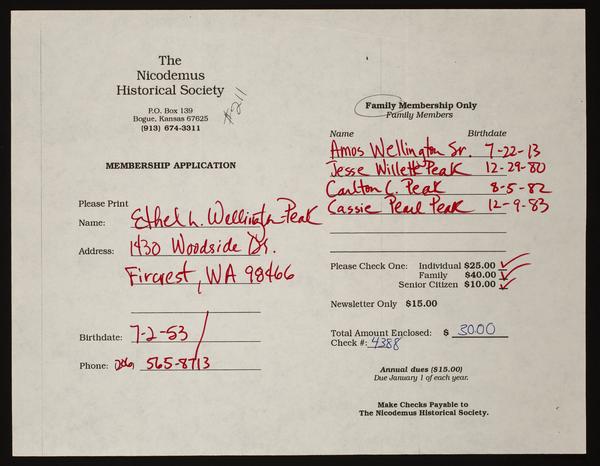 The
Nicodemus
Historical Society
P.O. Box 139
Bogue, Kansas 67625
(913) 674-3311
#211
MEMBERSHIP APPLICATION
Please Print
Name: Ethel L. Wellington-Peak
Address: 1430 Woodside Dr.
Fircrest, WA 98466
Birthdate: 7-2-53
Phone: (206) 565-8713
Family Membership Only
Family Members
Name Birthdate
Amos Wellington Sr. 7-22-13
Jesse Willett Peak 12-29-80
Carlton C. Peak 8-5-82
Cassie Pearl Peak 12-9-83
Please Check One: Individual $25.00 ✓
Family $40.00 ✓
Senior Citizen $10.00 ✓
Newsletter Only $15.00
Total Amount Enclosed: $ 30.00
Check #: 4388
Annual dues ($15.00)
Due January 1 of each year.
Make Checks Payable to
The Nicodemus Historical Society.